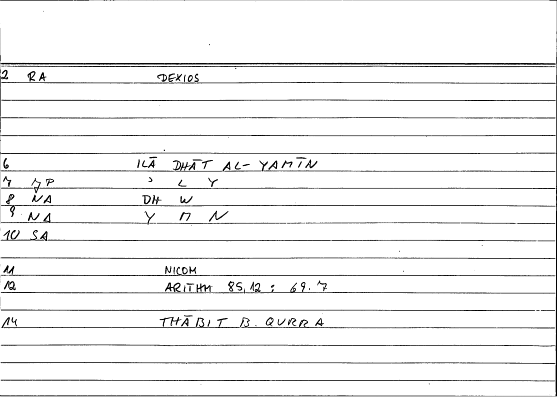 2 RA DEXIOS
6 ILĀ DHĀT AL-YAMĪN
7 ʾ L Y
8 NA DH W
9 NA Y M N
10 SA
11 NICOM
12 ARITHM 85,12 : 69.7
14 THĀBIT B. QURRA